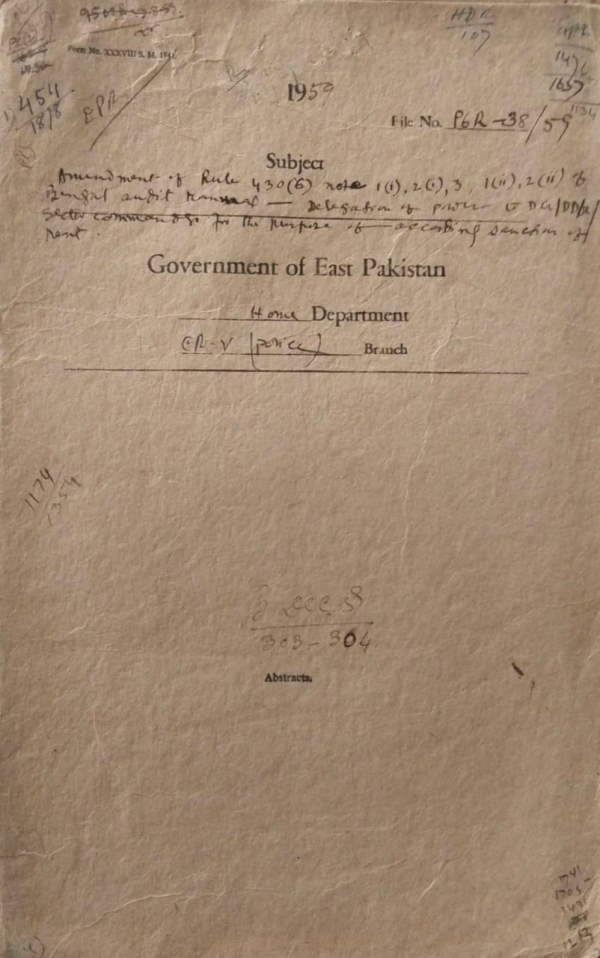 HDR
107
Form No. XXXVIII S. M. 1946
454
1878
EPR
1476
1657
1134
1959
File No. P6R-38/59
Subject
Amendment of Rule 430(6) note 1(i), 2(i), 3, 1(ii), 2(ii) of
Bengal audit manual — Delegation of power to DG/DDG/
Sector commanders for the purpose of according sanction of
rent.
Government of East Pakistan
Home Department
CR-V (police) Branch
1174
1354
B Dec 8
303-304
Abstracts.
1741
1705
147
1213